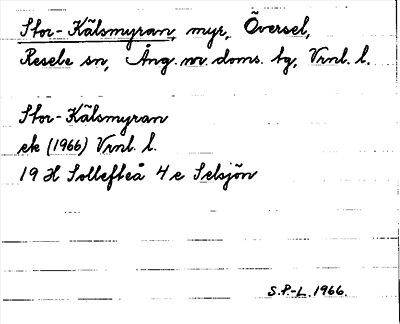 Stor-Kälsmyran, myr, Översel,
Resele sn, Ång. nv. doms. tg, Vrnl. l.
Stor-Kälsmyran
ek (1966) Vrnl. l.
19 H Sollefteå 4 e Selsjön
S.P-L. 1966.